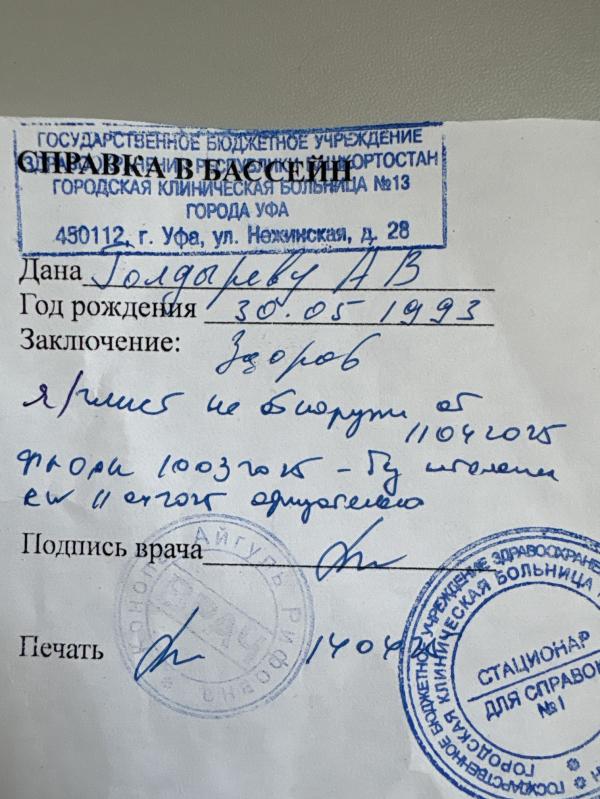 ГОСУДАРСТВЕННОЕ БЮДЖЕТНОЕ УЧРЕЖДЕНИЕ
ЗДРАВООХРАНЕНИЯ РЕСПУБЛИКИ БАШКОРТОСТАН
СПРАВКА В БАССЕЙН
ГОРОДСКАЯ КЛИНИЧЕСКАЯ БОЛЬНИЦА №13
ГОРОДА УФА
450112, г. Уфа, ул. Нежинская, д. 28
Дана Голдыреву А В
Год рождения 30.05 1993
Заключение: Здоров
я/глист не обнаружи от
11042025
10032025 -
RW 11042025 отрицательно
Подпись врача
Айгуль Рифовна
ВРАЧ
Печать 140425
ГОСУДАРСТВЕННОЕ БЮДЖЕТНОЕ УЧРЕЖДЕНИЕ
ГОРОДСКАЯ КЛИНИЧЕСКАЯ БОЛЬНИЦА
СТАЦИОНАР
ДЛЯ СПРАВОК
№1